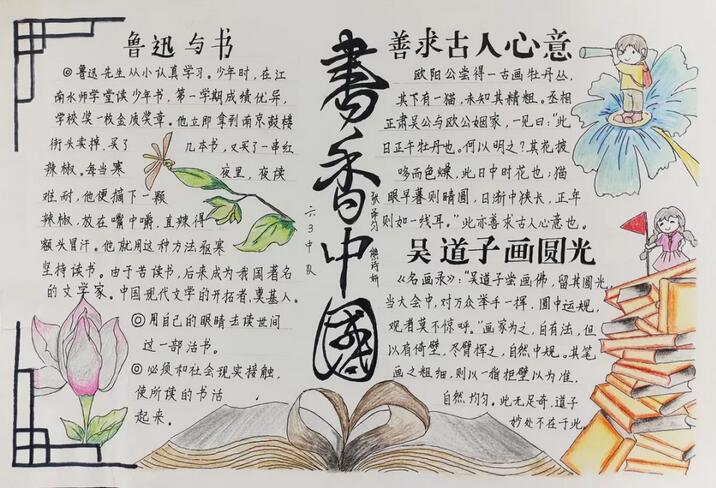 鲁迅与书
◎鲁迅先生从小认真学习。少年时，在江
南水师学堂读少年书，第一学期成绩优异，
学校奖一枚金质奖章。他立即拿到南京鼓楼
街头卖掉，买了几本书，又买了一串红
辣椒。每当寒夜里，夜读
难耐，他便摘下一颗
辣椒，放在嘴中嚼，直辣得
额头冒汗。他就用这种方法驱寒
坚持读书。由于苦读书，后来成为我国著名
的文学家。中国现代文学的开拓者，奠基人。
◎用自己的眼睛去读世间
这一部活书。
◎必须和社会现实接触，
使所读的书活
起来。
書香中國
六3中队
善求古人心意
欧阳公尝得一古画牡丹丛，
其下有一猫，未知其精粗。丞相
正肃吴公与欧公姻家，一见曰：“此
日正午牡丹也。何以明之？其花披
哆而色燥，此日中时花也；猫
眼早暮则睛圆，日渐中狭长，正午
则如一线耳。”此亦善求古人心意也。
吴道子画圆光
《名画录》：“吴道子尝画佛，留其圆光，
当大会中，对万众举手一挥，圆中运规，
观者莫不惊呼。”画家为之，自有法，但
以肩倚壁，尽臂挥之，自然中规。其笔
画之粗细，则以一指拒壁以为准，
自然均匀。此无足奇，道子
妙处不在于此。